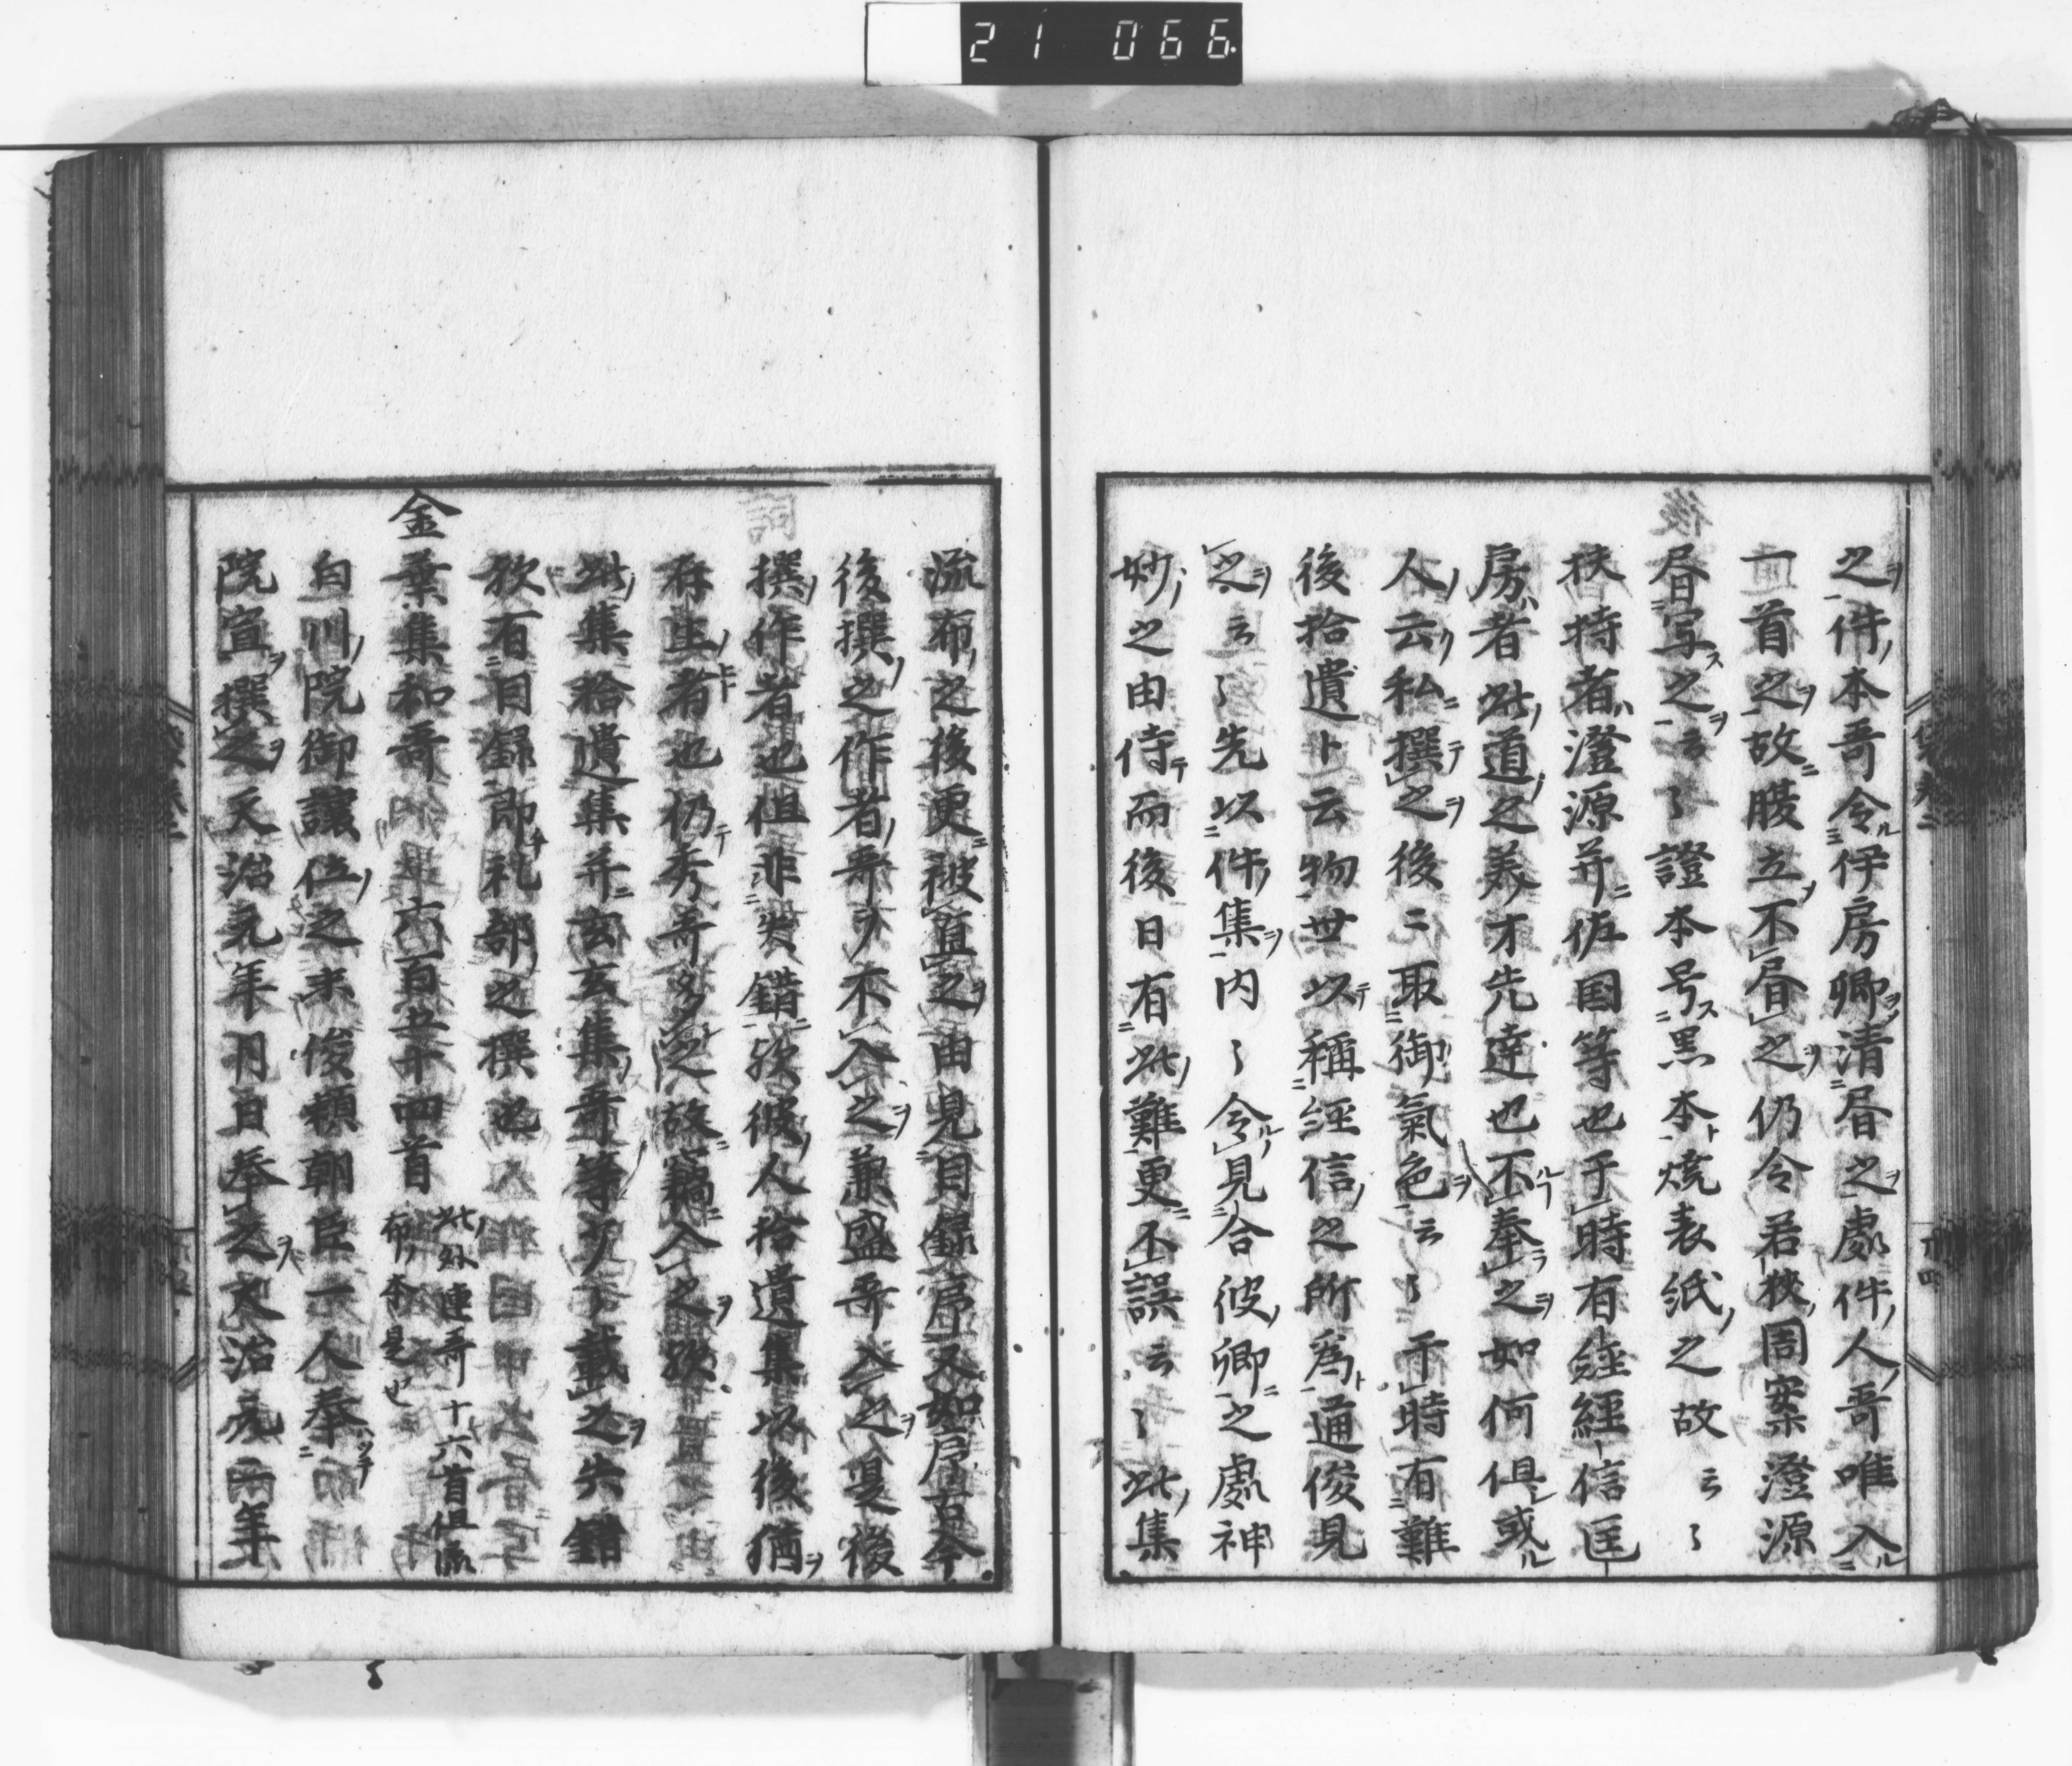 21 066
之件本哥令伊房卿清昼之處件人哥唯入
一首之故腹立不昼之仍令若狹固案澄源
昼写之云々證本号黒本燒表紙之故云々
扶持者澄源并佐国等也于時有經信匡
房者此道之美才先達也不奉之如何俱或
人云私撰之後ニ取御氣色云々于時有難
後拾遺ト云物世以稱経信之所爲ト通俊見
之云々先以件集内々令見合彼卿之處神
妙之由侍而後日有此難更不誤云々此集
流布之後更被直之由見目録序又如序古今
後撰之作者哥ヲ不入之兼盛哥入之是後
撰作者也但非失錯歟彼人拾遺集以後猶
存生者也仍秀哥多之故竊入之歟
此集拾遺集并玄玄集哥等少々載之失錯
歟有目録即礼部之撰也
金葉集和哥 六百五十四首 此外連哥十六首但流
布本是也
白川院御讓位之末俊頼朝臣一人奉
院宣撰之天治元年月日奉之大治元二年